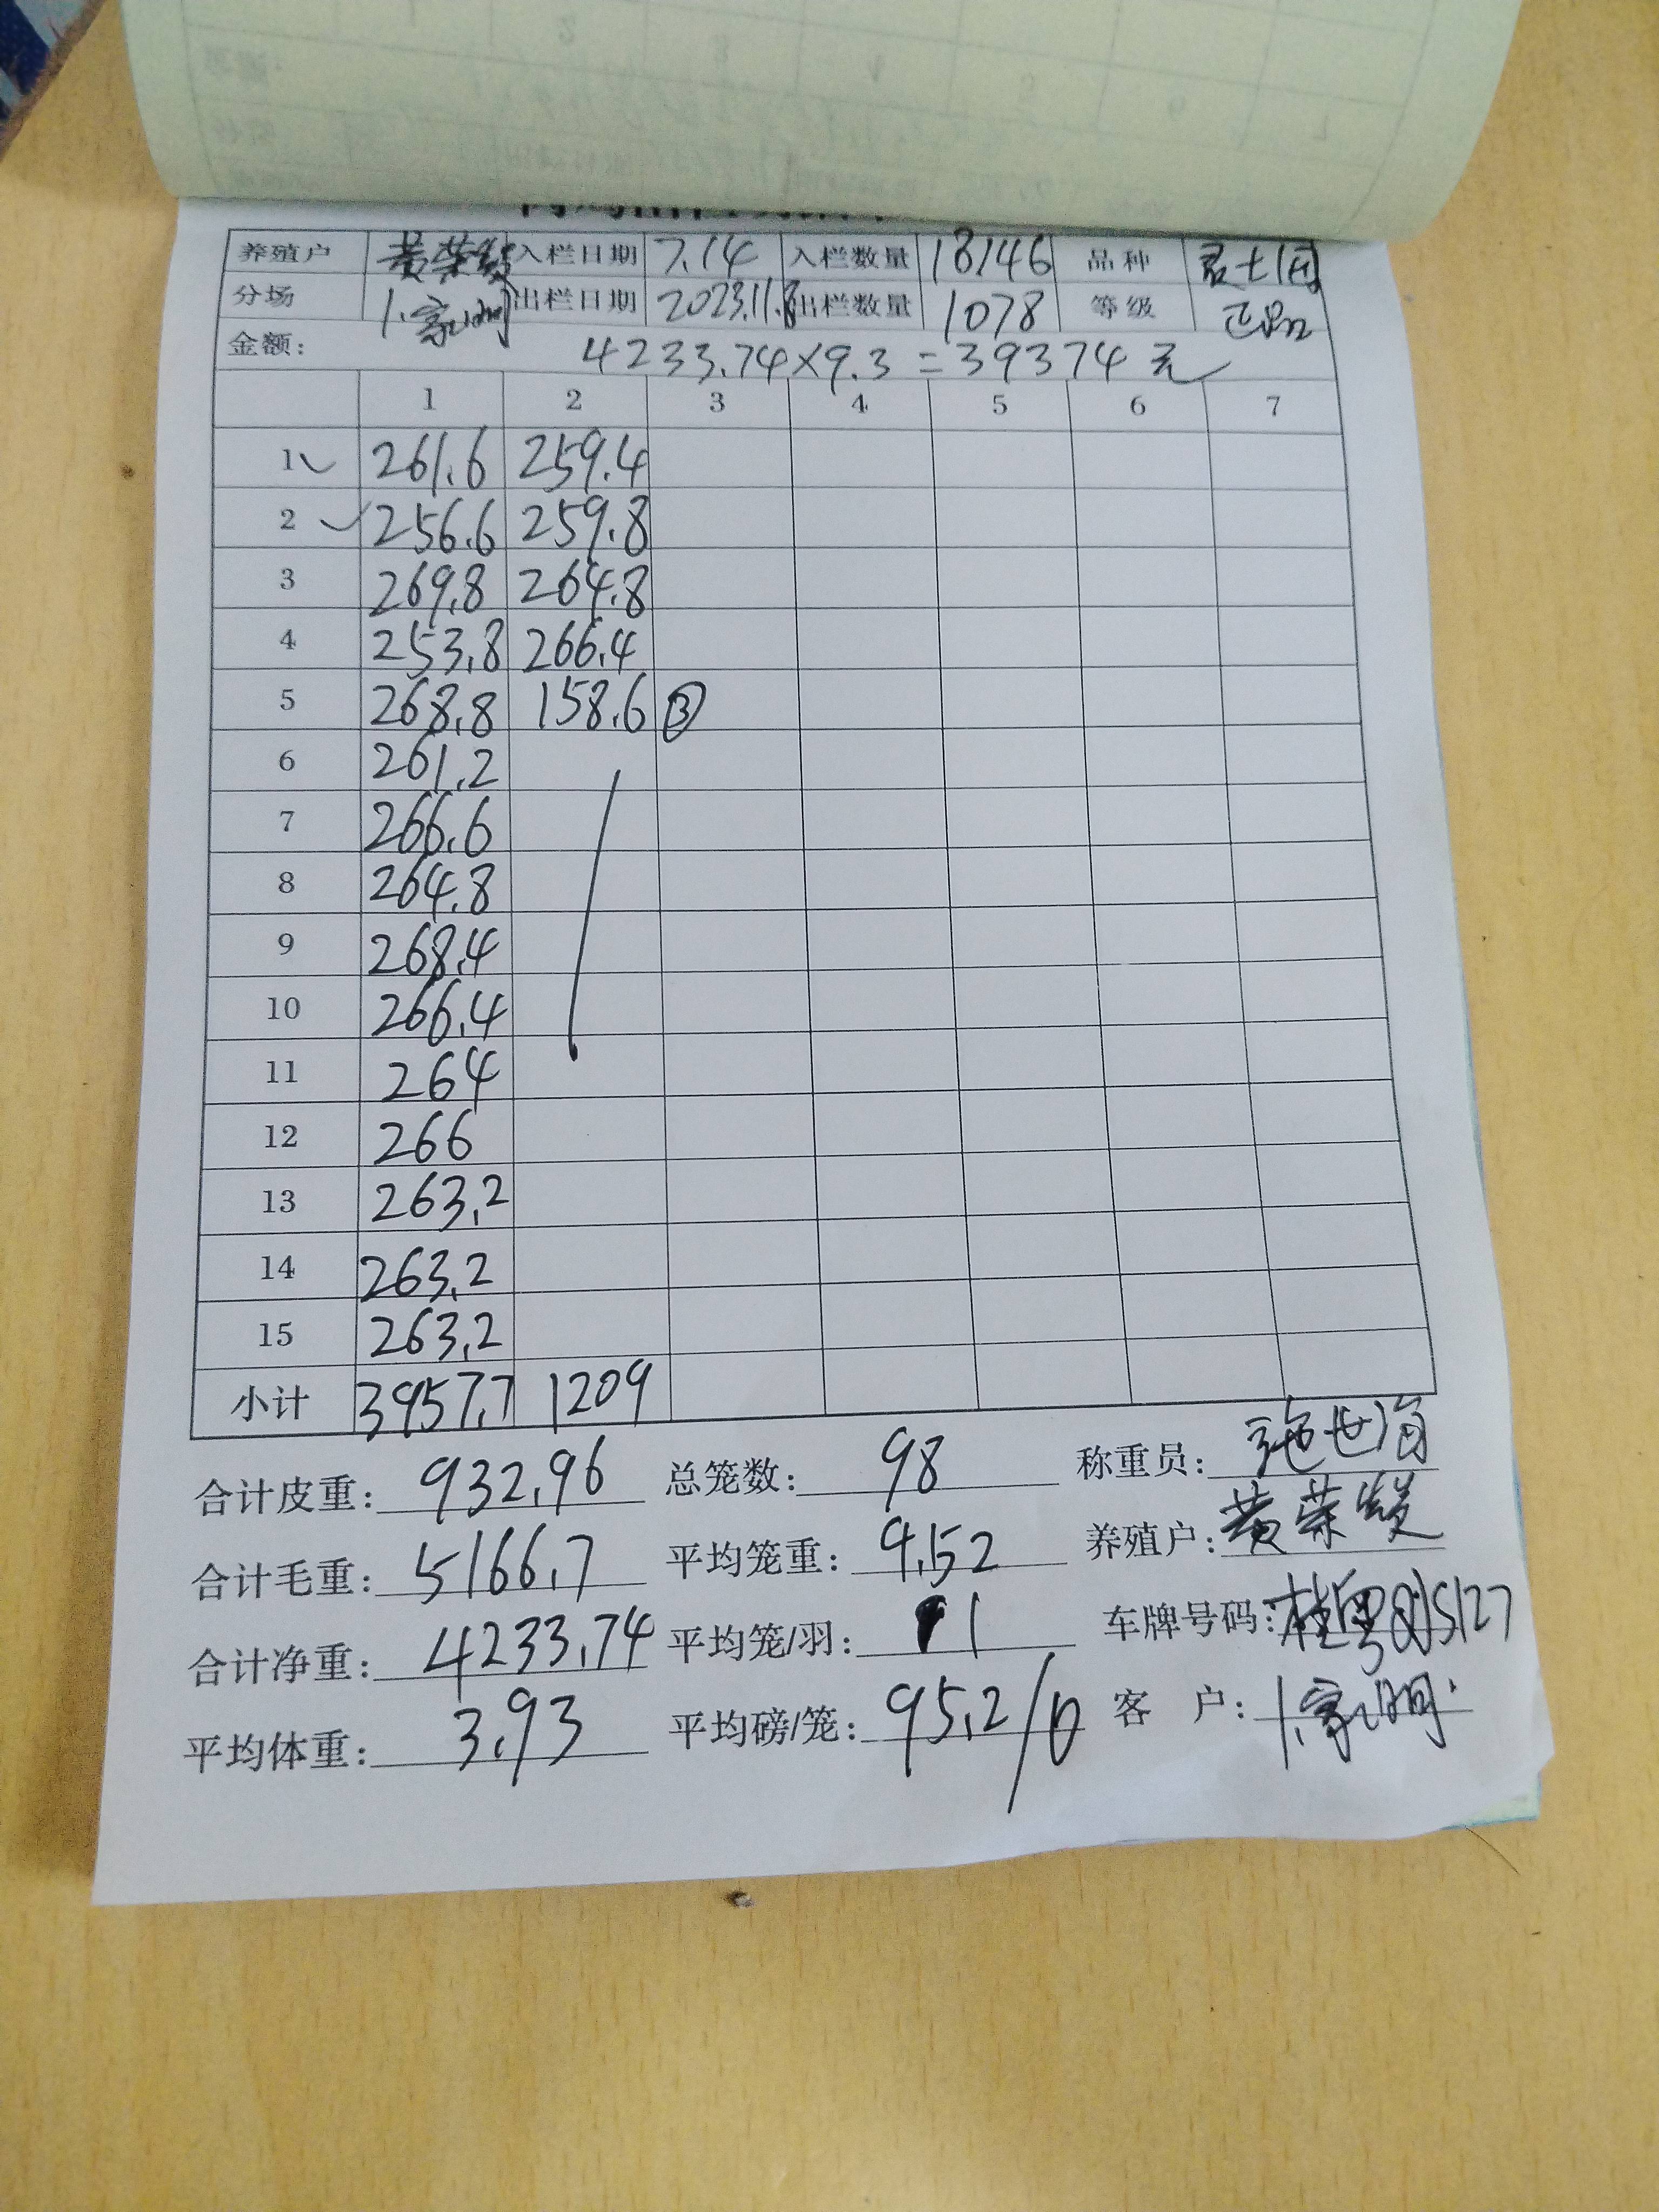 养殖户 黄荣 入栏日期 7.14 入栏数量 18146 品种
分场 出栏日期 2023.11.8 出栏数量 1078 等级 正品
金额: 4233.74×9.3=39374元
1 2 3 4 5 6 7
1 261.6 259.4
2 256.6 259.8
3 269.8 264.8
4 253.8 266.4
5 268.8 158.6 ③
6 261.2
7 266.6
8 264.8
9 268.4
10 266.4
11 264
12 266
13 263.2
14 263.2
15 263.2
小计 3957.7 1209
合计皮重: 932.96 总笼数: 98 称重员:
合计毛重: 5166.7 平均笼重: 9.52 养殖户: 黄荣
合计净重: 4233.74 平均笼/羽: 11 车牌号码:
平均体重: 3.93 平均磅/笼: 95.2/10 客 户: